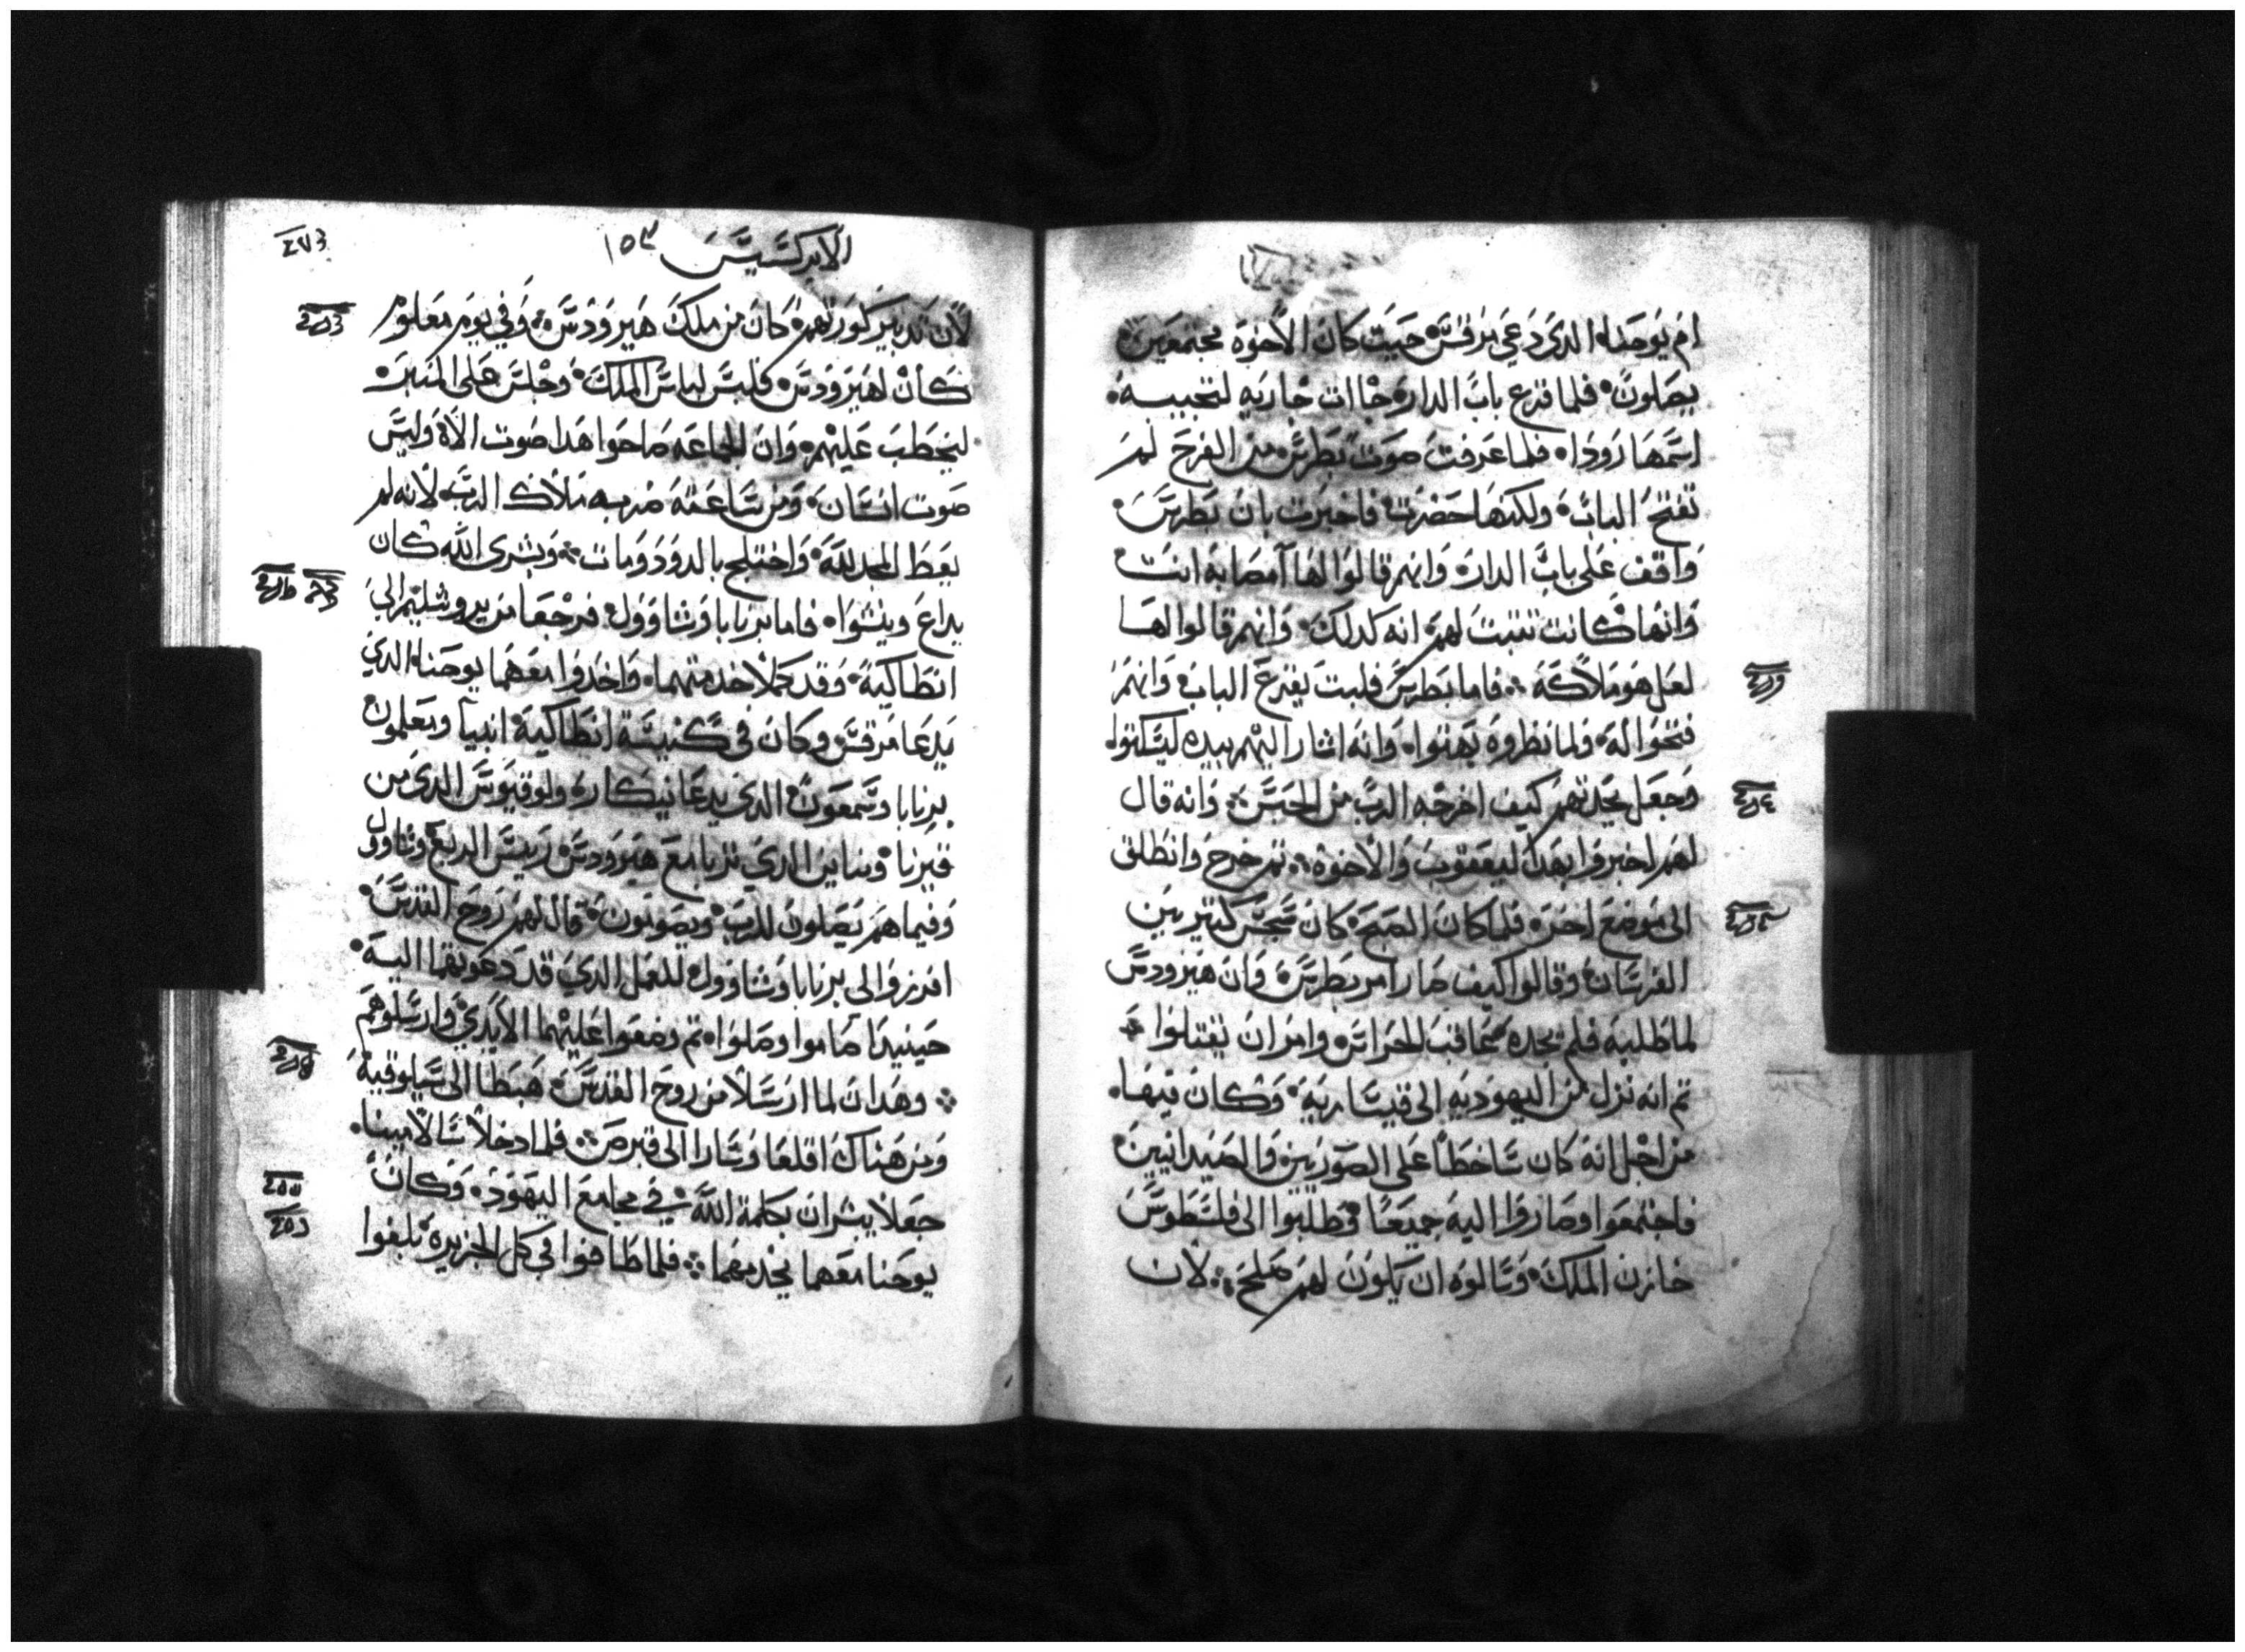 ام يوحنا الدي دعي مرقس حيت كان الاخوة مجتمعين
يصلون فلما قرع باب الدار جاات جاريه لتجيبه
اسمها رودا فلما عرفت صوت بطرس من الفرح لم
تفتح الباب ولكنها حضرت فاخبرت بان بطرس
واقف على باب الدار وانهم قالوا لها امصابة انت
وانها كانت تتبت لهم انه كدلك وانهم قالوا لها
لعل هو ملاكه فاما بطرس فلبت يقرع الباب وانهم
فتحوا له فلما نظروه بهتوا وانه اشار اليهم بيده ليسكتوا
وجعل يحدتهم كيف اخرجه الرب من الحبس وانه قال
لهم اخبروا بهدا ليعقوب والاخوة تم خرج وانطلق
الى موضع اخر فلما كان الصبح كان سجس كتير بين
الفرسان وقالوا كيف صار امر بطرس وان هيرودس
لما طلبه فلم يجده عاقب الحراس وامر ان يقتلوا
تم انه نزل من اليهوديه الى قيساريه وكان فيها
من اجل انه كان ساخطا على الصوريين والصيدانيين
فاجتمعوا وصاروا اليه جميعا وطلبوا الى فلسطوس
خازن الملك وسالوه ان يكون لهم صلح لان
٢٧٣
الابركسيس ١٥٣
لان تدبير كورتهم كان من ملك هيرودس وفي يوم معلوم
كان لهيرودس فلبس لباس الملك وجلس على المنبر
ليخطب عليهم وان الجماعه صاحوا هدا صوت الاه وليس
صوت انسان ومن ساعته ضربه ملاك الرب لانه لم
يعط المجد لله واختلج بالدود ومات وبشرى الله كان
يداع وينشوا فاما برنابا وشاوول فرجعا من يروشليم الى
انطاكية وقد كملا خدمتهما واخدوا معهما يوحنا الدي
يدعا مرقس وكان في كنيسة انطاكية انبيا ومعلمون
برنابا وسمعون الدي يدعا نيكار ولوقيوس الدي من
قيرنا ومناين الدي تربا مع هيرودس رييس الربع وشاوول
وفيما هم يصلون للرب ويصومون قال لهم روح القدس
افرزوا لي برنابا وشاوول للعمل الدي قد دعوتهما اليه
حينيدا صاموا وصلوا تم وضعوا عليهما الايدي وارسلوهم
وهدان لما ارسلا من روح القدس هبطا الى سيلوقية
ومن هناك اقلعا وسارا الى قبرص فلما دخلا سالامينا
جعلا يبشران بكلمة الله في مجامع اليهود وكان
يوحنا معهما يخدمهما فلما طافوا في كل الجزيرة بلغوا